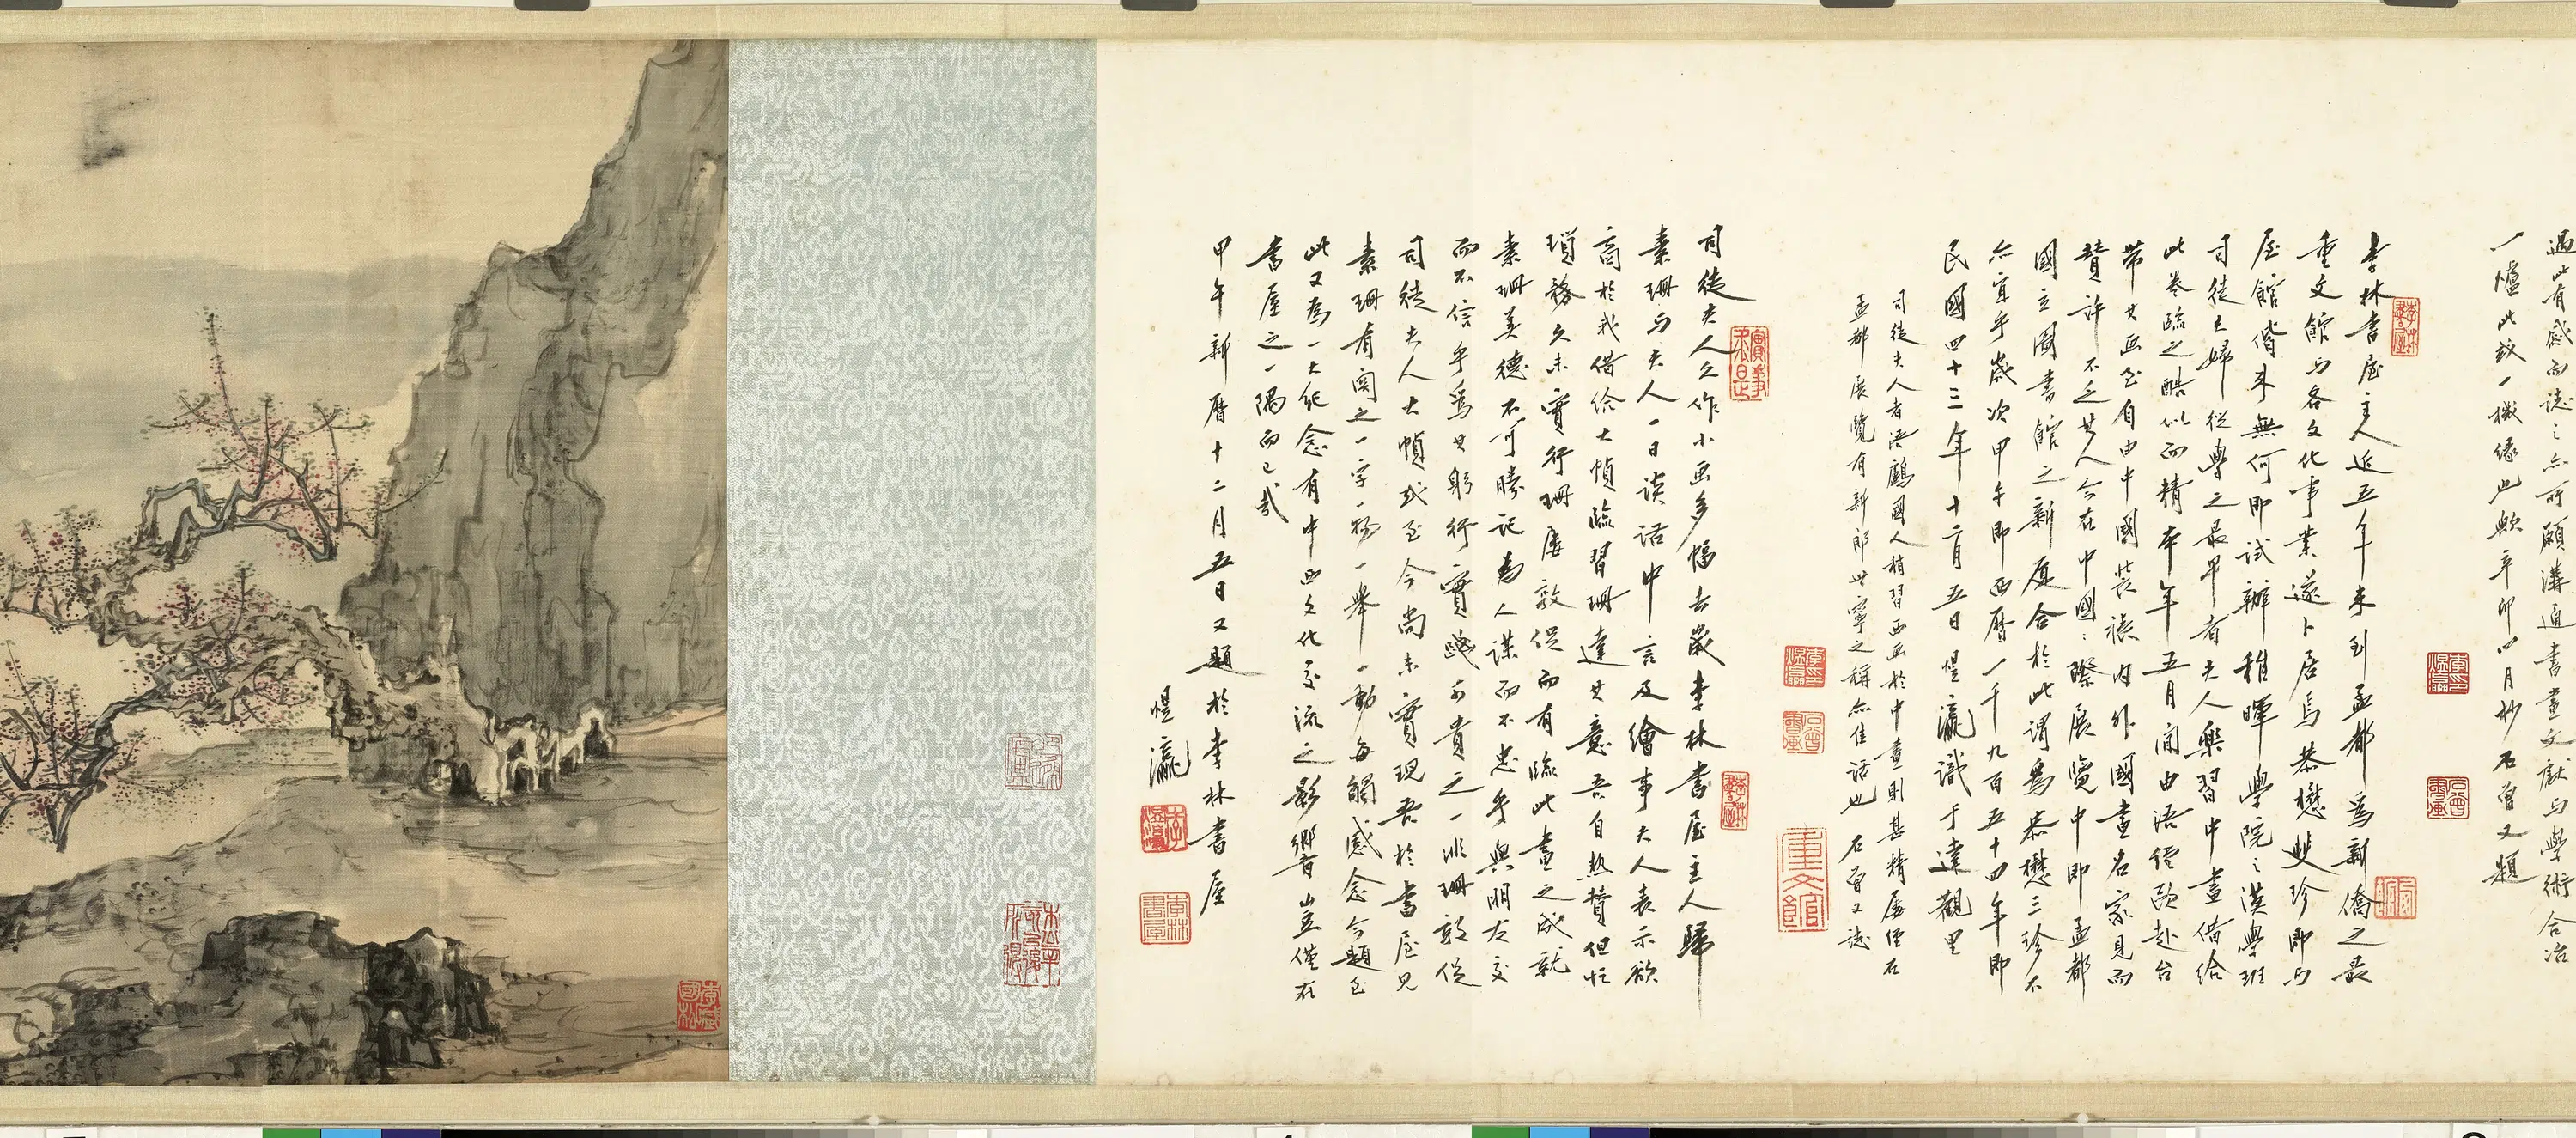 過此有感而誌之亦所願溝通書畫文獻与學術合冶
一爐此殆一機緣也歟辛卯四月杪石曾又題
李林書屋主人近五年來到孟都為新僑之最
重文館与各文化事業遂卜居焉恭懋雙珍即与
屋館偕來無何即試辦稚暉學院之漢學班
司徒夫婦從學之最早者夫人樂習中畫借給
此卷臨之酷似而精本年五月間由浯經歐赴台
帶其画至自由中國裝裱內外國畫名家見而
贊許不乏其人今在中國之際展覽中即孟都
國立圖書館之新廈合於此謂為恭懋三珍不
亦宜乎歲次甲午即西曆一千九百五十四年即
民國四十三年十二月五日煜瀛識于達觀里
司徒夫人者浯鷗國人稍習西画於中畫則甚精屢經在
孟都展覽有新郎世寧之稱亦佳話也 石曾又誌
司徒夫人之作小画多幅去歲李林書屋主人歸
素珊与夫人一日談話中言及繪事夫人表示欲
高於我借給大幀臨習珊達其意吾自熱贊但忙
瑣務久未實行珊屢敦促而有臨此畫之成就
素珊美德不可勝記為人謀而不忠乎與朋友交
而不信乎為其躬行實踐可貴之一班珊敦促
司徒夫人大幀或至今尚未實現吾於書屋見
素珊有関之一字一物一舉一動每觸感念今題至
此又為一大紀念有中西文化交流之影響豈僅在
書屋之一隅而已哉
甲午新曆十二月五日又題於李林書屋
煜瀛